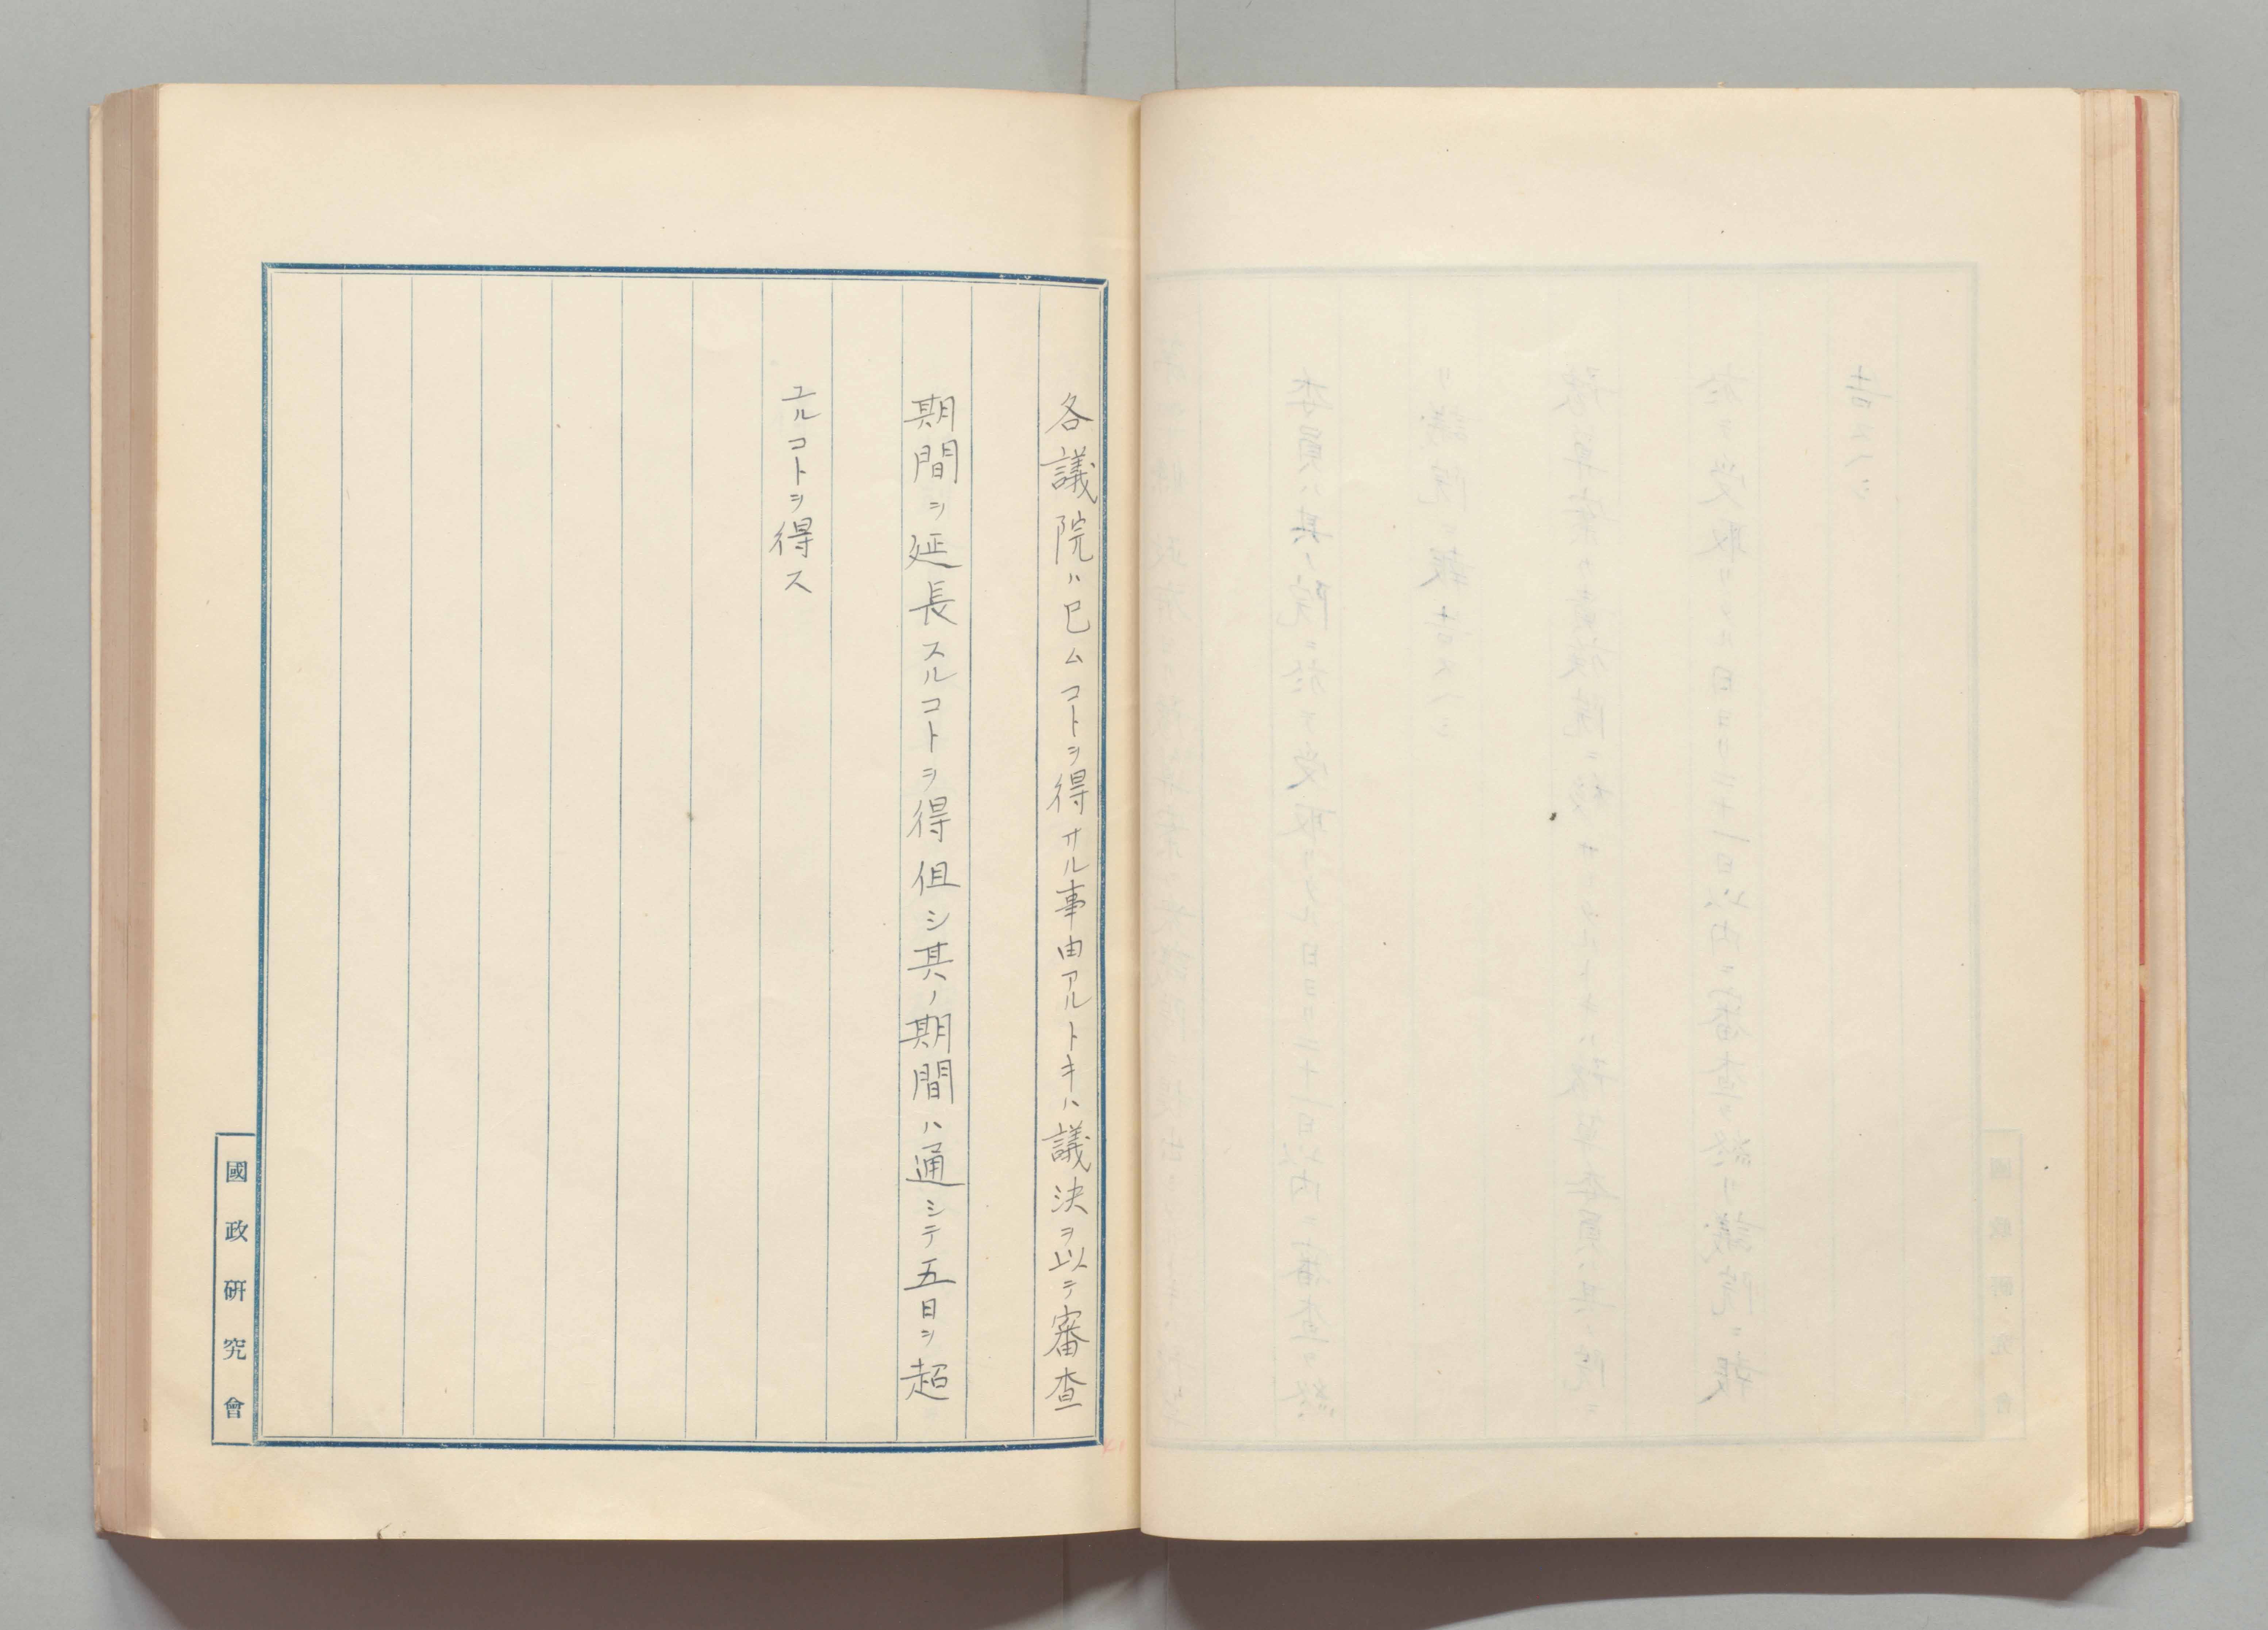 各議院ハ已ムコトヲ得サル事由アルトキハ議決ヲ以テ審査
期間ヲ延長スルコトヲ得但シ其ノ期間ハ通シテ五日ヲ超
ユルコトヲ得ス
國政研究會